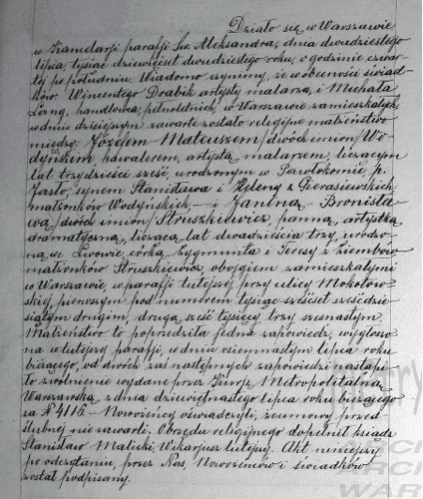 Działo się w Warszawie
w Kancelarji parafji Św. Aleksandra, dnia dwudziestego
lipca, tysiąc dziewięćset dwudziestego roku, o godzinie czwar-
tej po południu. Wiadomo czynimy, że w obecności świad-
ków Wincentego Drabik artysty malarza, i Michała
handlowca, pełnoletnich, w Warszawie zamieszkałych,
w dniu dzisiejszym zawarte zostało religijne małżeństwo
między: Józefem Mateuszem /dwóch imion/ Wo-
dyńskim, kawalerem, artystą malarzem, liczącym
lat trzydzieści sześć, urodzonym w Pawłokomie, p.
Jasło, synem Stanisława i Heleny z Gierasiewskich
małżonków Wodyńskich, — i Janiną - Bronisła-
wą /dwóch imion/ Struszkiewicz, panną, artystką
dramatyczną, liczącą lat dwadzieścia trzy, urodzo-
ną we Lwowie, córką Zygmunta i Teresy z Ziembów
małżonków Struszkiewicz, obojgiem zamieszkałymi
w Warszawie, w parafji tutejszej, przy ulicy Mokotow-
skiej, pierwszym pod numerem tysiąc sześćset sześćdzie-
siątym drugim, drugą, sześć tysięcy trzy szesnastym.
Małżeństwo to poprzedziła jedna zapowiedź, wygłoszo-
na w tutejszej parafji, w dniu osiemnastym lipca roku
bieżącego, od dwóch zaś następnych zapowiedzi nastąpi-
ło zwolnienie wydane przez Kurję Metropolitalną
Warszawską, z dnia dziewiętnastego lipca roku bieżącego
za № 4116 — Nowożeńcy oświadczyli, że umowy przed-
ślubnej nie zawarli. Obrzędu religijnego dopełnił ksiądz
Stanisław Malicki, Wikarjusz tutejszy. Akt niniejszy
po odczytaniu, przez Nas, Nowożeńców i świadków
został podpisany.